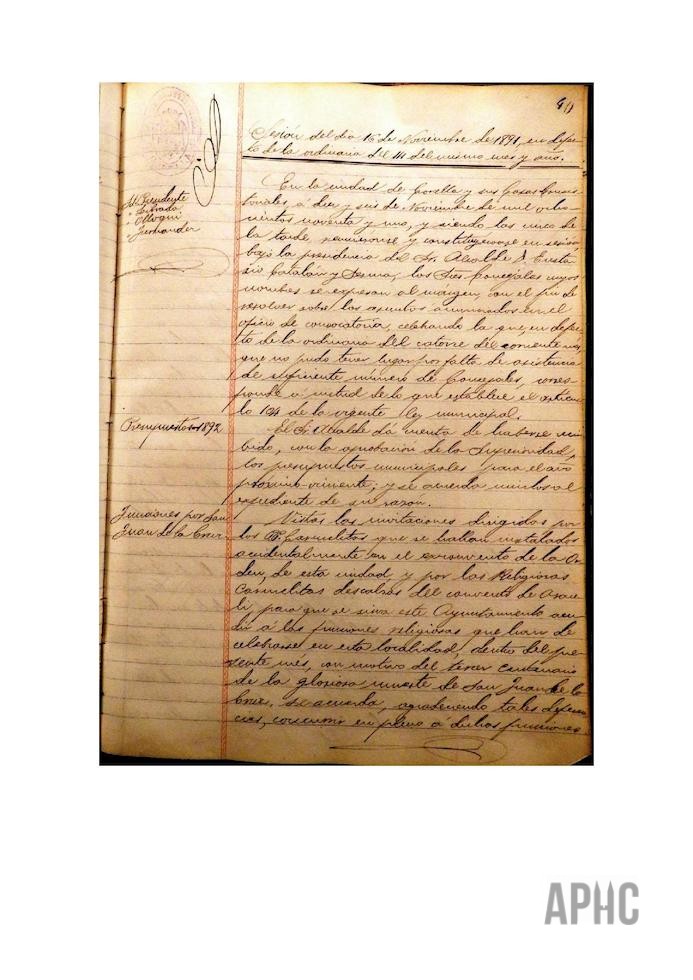 40
Sesion del dia 16 de Noviembre de 1891, en defec-
to de la ordinaria del 14 del mismo mes y año.
Sr. Presidente
"
" Olloqui
" Fernandez
En la ciudad de Corella y sus Casas Consis-
toriales a diez y seis de Noviembre de mil ocho-
cientos noventa y uno, y siendo las cinco de
la tarde, reunieronse y constituyeronse en sesion,
bajo la presidencia del Sr. Alcalde D. Eusta-
sio Catalán y Serna, los Sres. Concejales cuyos
nombres se expresan al margen, con el fin de
resolver sobre los asuntos anunciados en el
oficio de convocatoria, celebrando la que, en defec-
to de la ordinaria del catorce del corriente mes,
que no pudo tener lugar por falta de asistencia
de suficiente número de Concejales, corres-
ponde a virtud de lo que establece el articu-
lo 104 de la vigente ley municipal.
Presupuestos 1892
El Sr. Alcalde dá cuenta de haberse reci-
bido, con la aprobacion de la Superioridad,
los presupuestos municipales para el año
próximo viniente; y se acuerda unirlos al
expediente de su razón.
Funciones por San
Juan de la Cruz
Vistas las invitaciones dirigidas por
los PP. Carmelitas que se hallan instalados
accidentalmente en el exconvento de la Or-
den, de esta ciudad, y por las Religiosas
Carmelitas descalzas del convento de Arace-
li, para que se sirva este Ayuntamiento acu-
dir á las funciones religiosas que han de
celebrarse en esta localidad, dentro del pre-
sente mes, con motivo del tercer centenario
de la gloriosa muerte de San Juan de la
Cruz, se acuerda, agradeciendo tales deferen-
cias, concurrir en pleno a dichas funciones
APHC